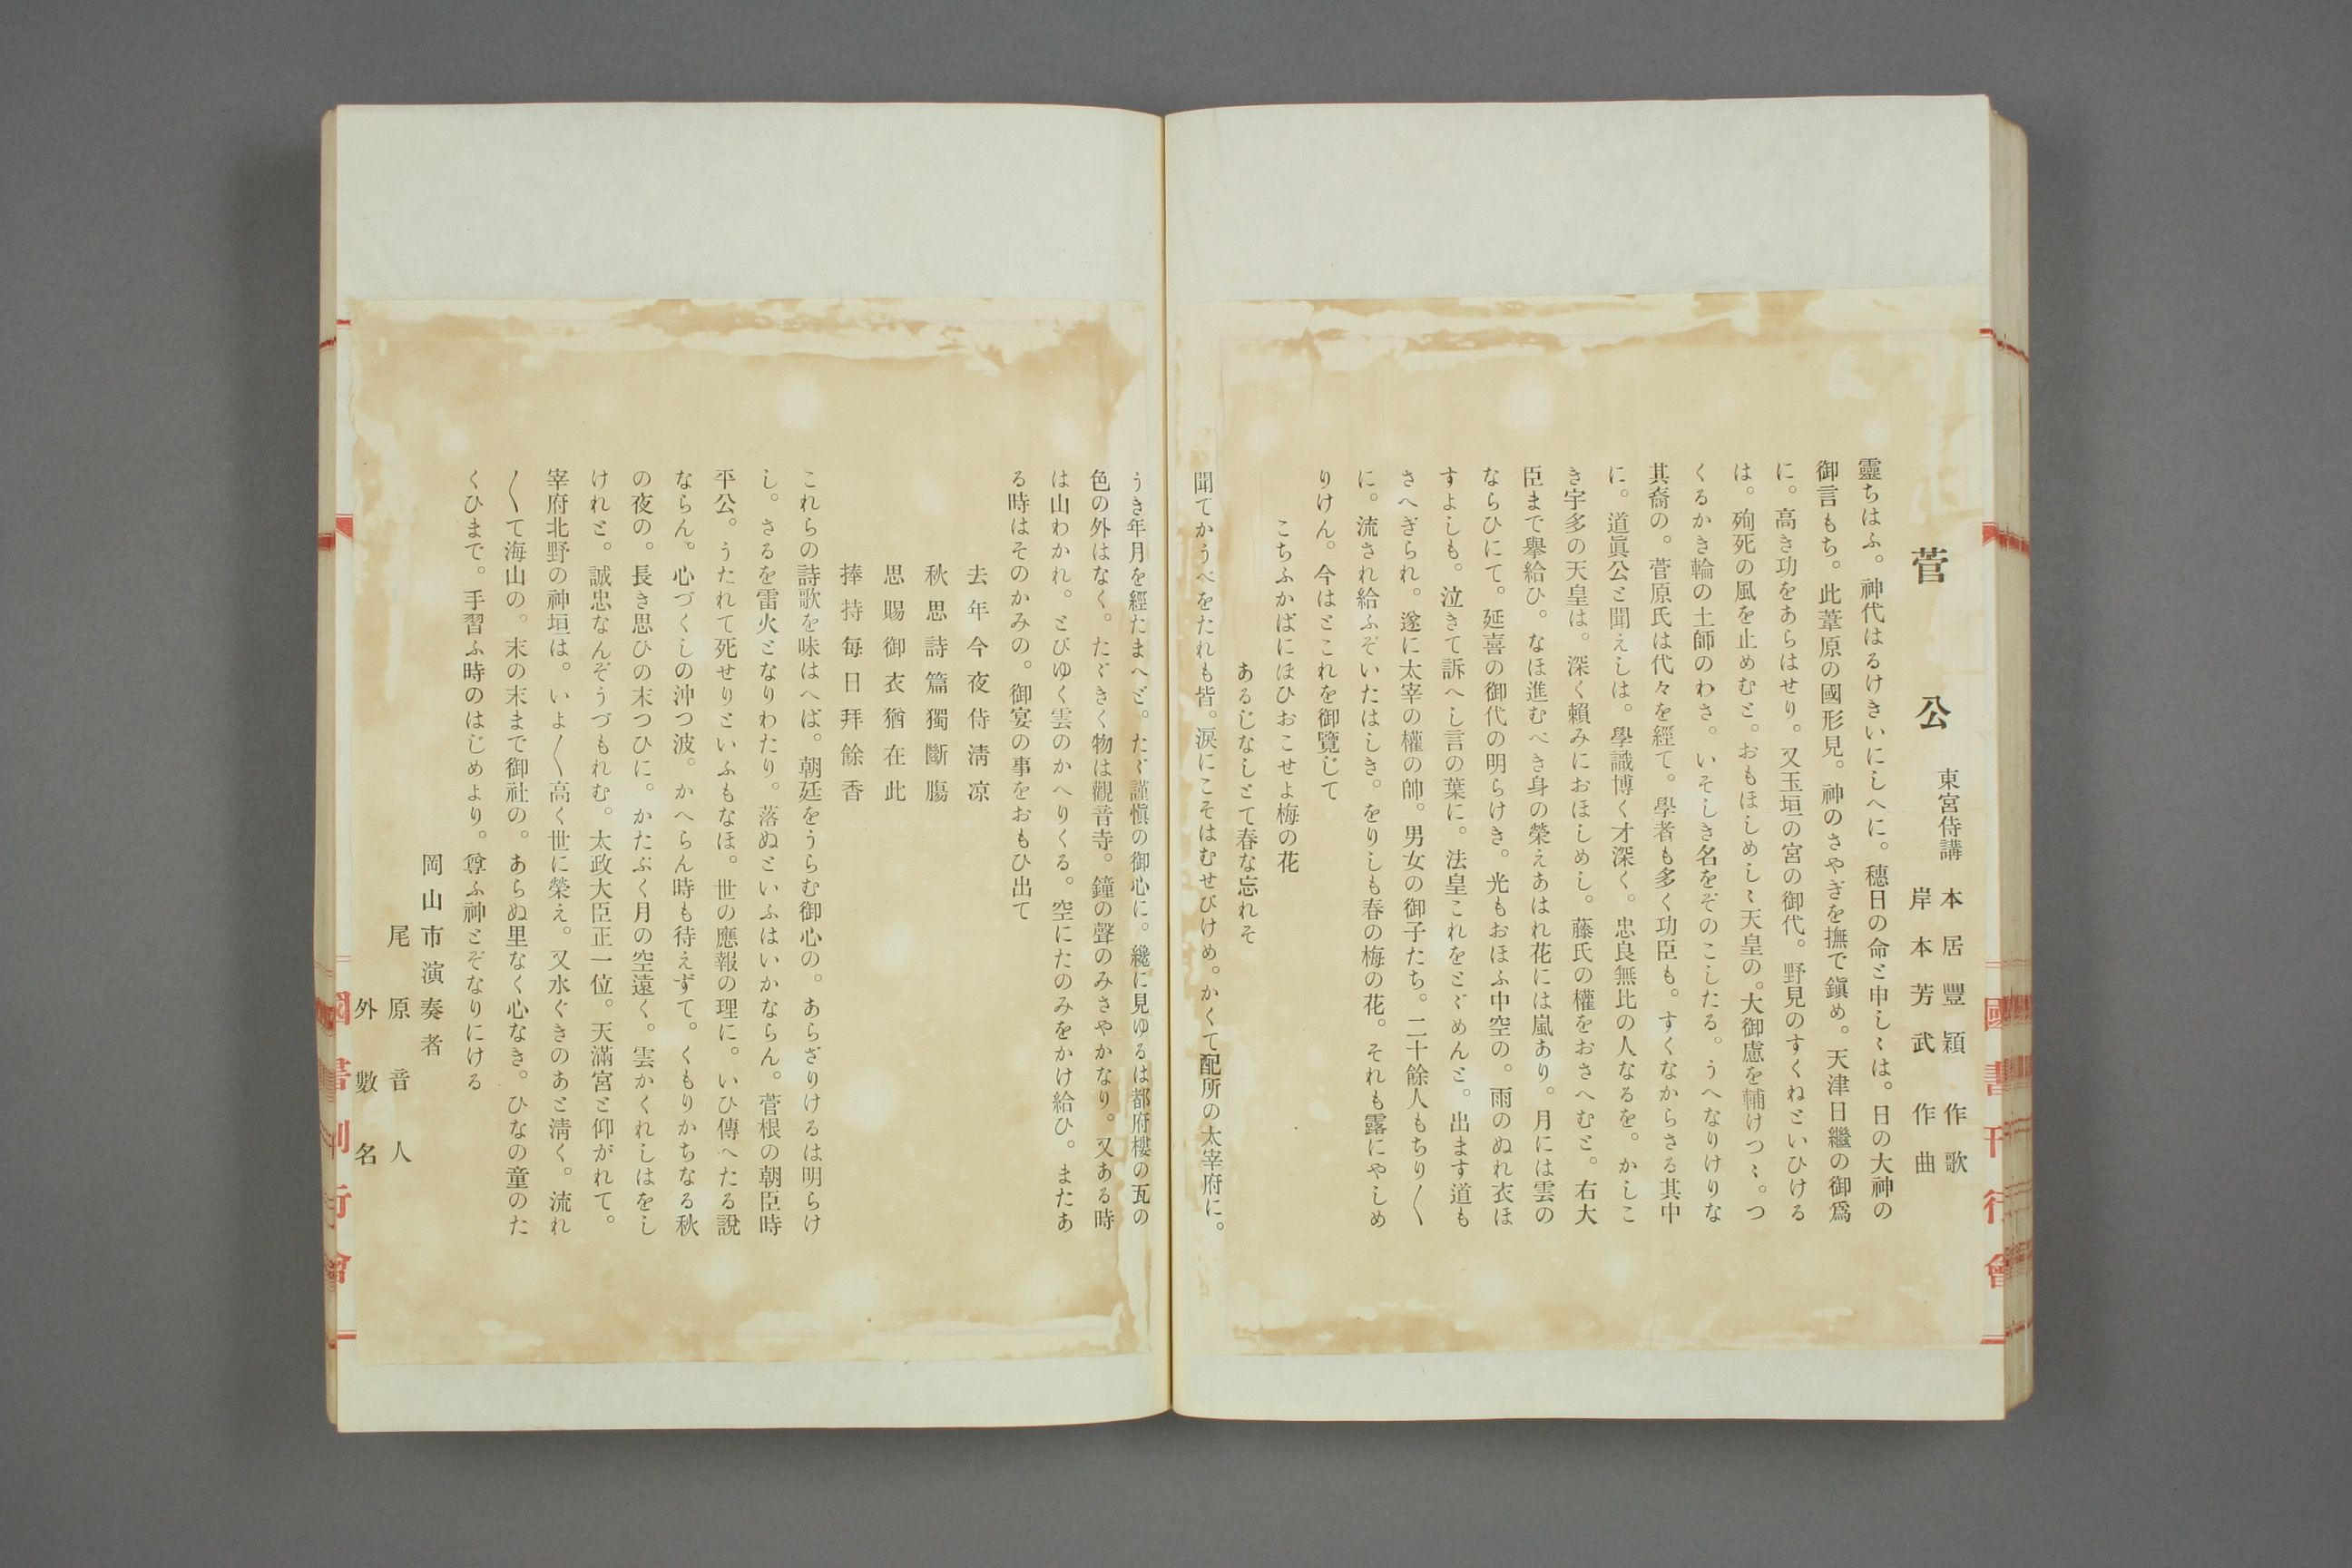 菅公
東宮侍講 本居豐穎 作歌
岸本芳武 作曲
靈ちはふ。神代はるけきいにしへに。穗日の命と申しゝは。日の大神の
御言もち。此葦原の國形見。神のさやぎを撫で鎭め。天津日繼の御爲
に。高き功をあらはせり。又玉垣の宮の御代。野見のすくねといひける
は。殉死の風を止めむと。おもほしめしゝ天皇の。大御慮を輔けつゝ。つ
くるかき輪の土師のわさ。いそしき名をぞのこしたる。うへなりけりな
其裔の。菅原氏は代々を經て。學者も多く功臣も。すくなからさる其中
に。道眞公と聞えしは。學識博く才深く。忠良無比の人なるを。かしこ
き宇多の天皇は。深く賴みにおほしめし。藤氏の權をおさへむと。右大
臣まで擧給ひ。なほ進むべき身の榮えあはれ花には嵐あり。月には雲の
ならひにて。延喜の御代の明らけき。光もおほふ中空の。雨のぬれ衣ほ
すよしも。泣きて訴へし言の葉に。法皇これをとゞめんと。出ます道も
さへぎられ。遂に太宰の權の帥。男女の御子たち。二十餘人もちり〱
に。流され給ふぞいたはしき。をりしも春の梅の花。それも露にやしめ
りけん。今はとこれを御覽じて
こちふかばにほひおこせよ梅の花
あるじなしとて春な忘れそ
聞てかうべをたれも皆。淚にこそはむせびけめ。かくて配所の太宰府に。
うき年月を經たまへど。たゞ謹愼の御心に。纔に見ゆるは都府樓の瓦の
色の外はなく。たゞきく物は觀音寺。鐘の聲のみさやかなり。又ある時
は山わかれ。とびゆく雲のかへりくる。空にたのみをかけ給ひ。またあ
る時はそのかみの。御宴の事をおもひ出て
去年今夜侍淸凉
秋思詩篇獨斷膓
思賜御衣猶在此
捧持每日拜餘香
これらの詩歌を味はへば。朝廷をうらむ御心の。あらざりけるは明らけ
し。さるを雷火となりわたり。落ぬといふはいかならん。菅根の朝臣時
平公。うたれて死せりといふもなほ。世の應報の理に。いひ傳へたる說
ならん。心づくしの沖つ波。かへらん時も待えずて。くもりかちなる秋
の夜の。長き思ひの末つひに。かたぶく月の空遠く。雲かくれしはをし
けれと。誠忠なんぞうづもれむ。太政大臣正一位。天滿宮と仰がれて。
宰府北野の神垣は。いよ〱高く世に榮え。又水ぐきのあと淸く。流れ
〱て海山の。末の末まで御社の。あらぬ里なく心なき。ひなの童のた
くひまで。手習ふ時のはじめより。尊ふ神とぞなりにける
岡山市演奏者
尾原音人
外數名
國書刊行會
國書刊行會